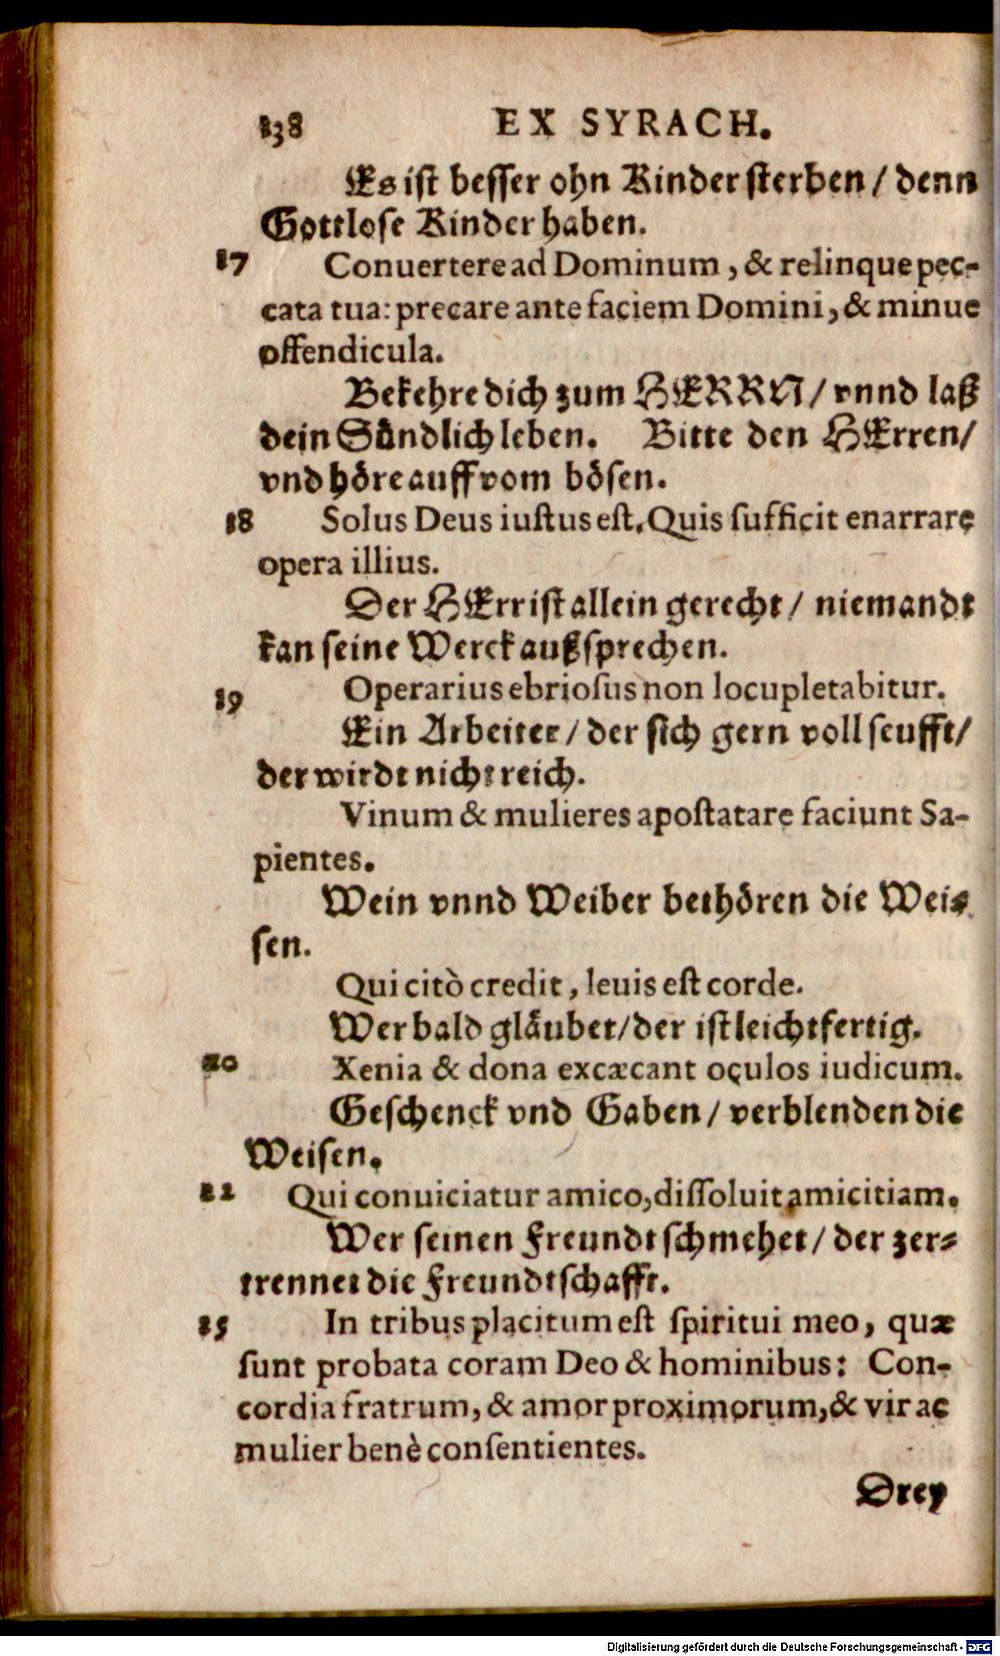 138 EX SYRACH.
Es ist besser ohn Kinder sterben / denn
Gottlose Kinder haben.
17 Conuertere ad Dominum, & relinque pec-
cata tua: precare ante faciem Domini, & minue
offendicula.
Bekehre dich zum HERRN / vnnd laß
dein Sündlich leben. Bitte den HErren /
vnd höre auff vom bösen.
18 Solus Deus iustus est. Quis sufficit enarrare
opera illius.
Der HErr ist allein gerecht / niemandt
kan seine Werck außsprechen.
19 Operarius ebriosus non locupletabitur.
Ein Arbeiter / der sich gern voll seufft /
der wirdt nicht reich.
Vinum & mulieres apostatare faciunt Sa-
pientes.
Wein vnnd Weiber bethören die Wei-
sen.
Qui citò credit, leuis est corde.
Wer bald gläubet / der ist leichtfertig.
20 Xenia & dona excæcant oculos iudicum.
Geschenck vnd Gaben / verblenden die
Weisen.
22 Qui conuiciatur amico, dissoluit amicitiam.
Wer seinen Freundt schmehet / der zer-
trennet die Freundtschafft.
25 In tribus placitum est spiritui meo, quæ
sunt probata coram Deo & hominibus: Con-
cordia fratrum, & amor proximorum, & vir ac
mulier benè consentientes.
Drey
Digitalisierung gefördert durch die Deutsche Forschungsgemeinschaft - DFG